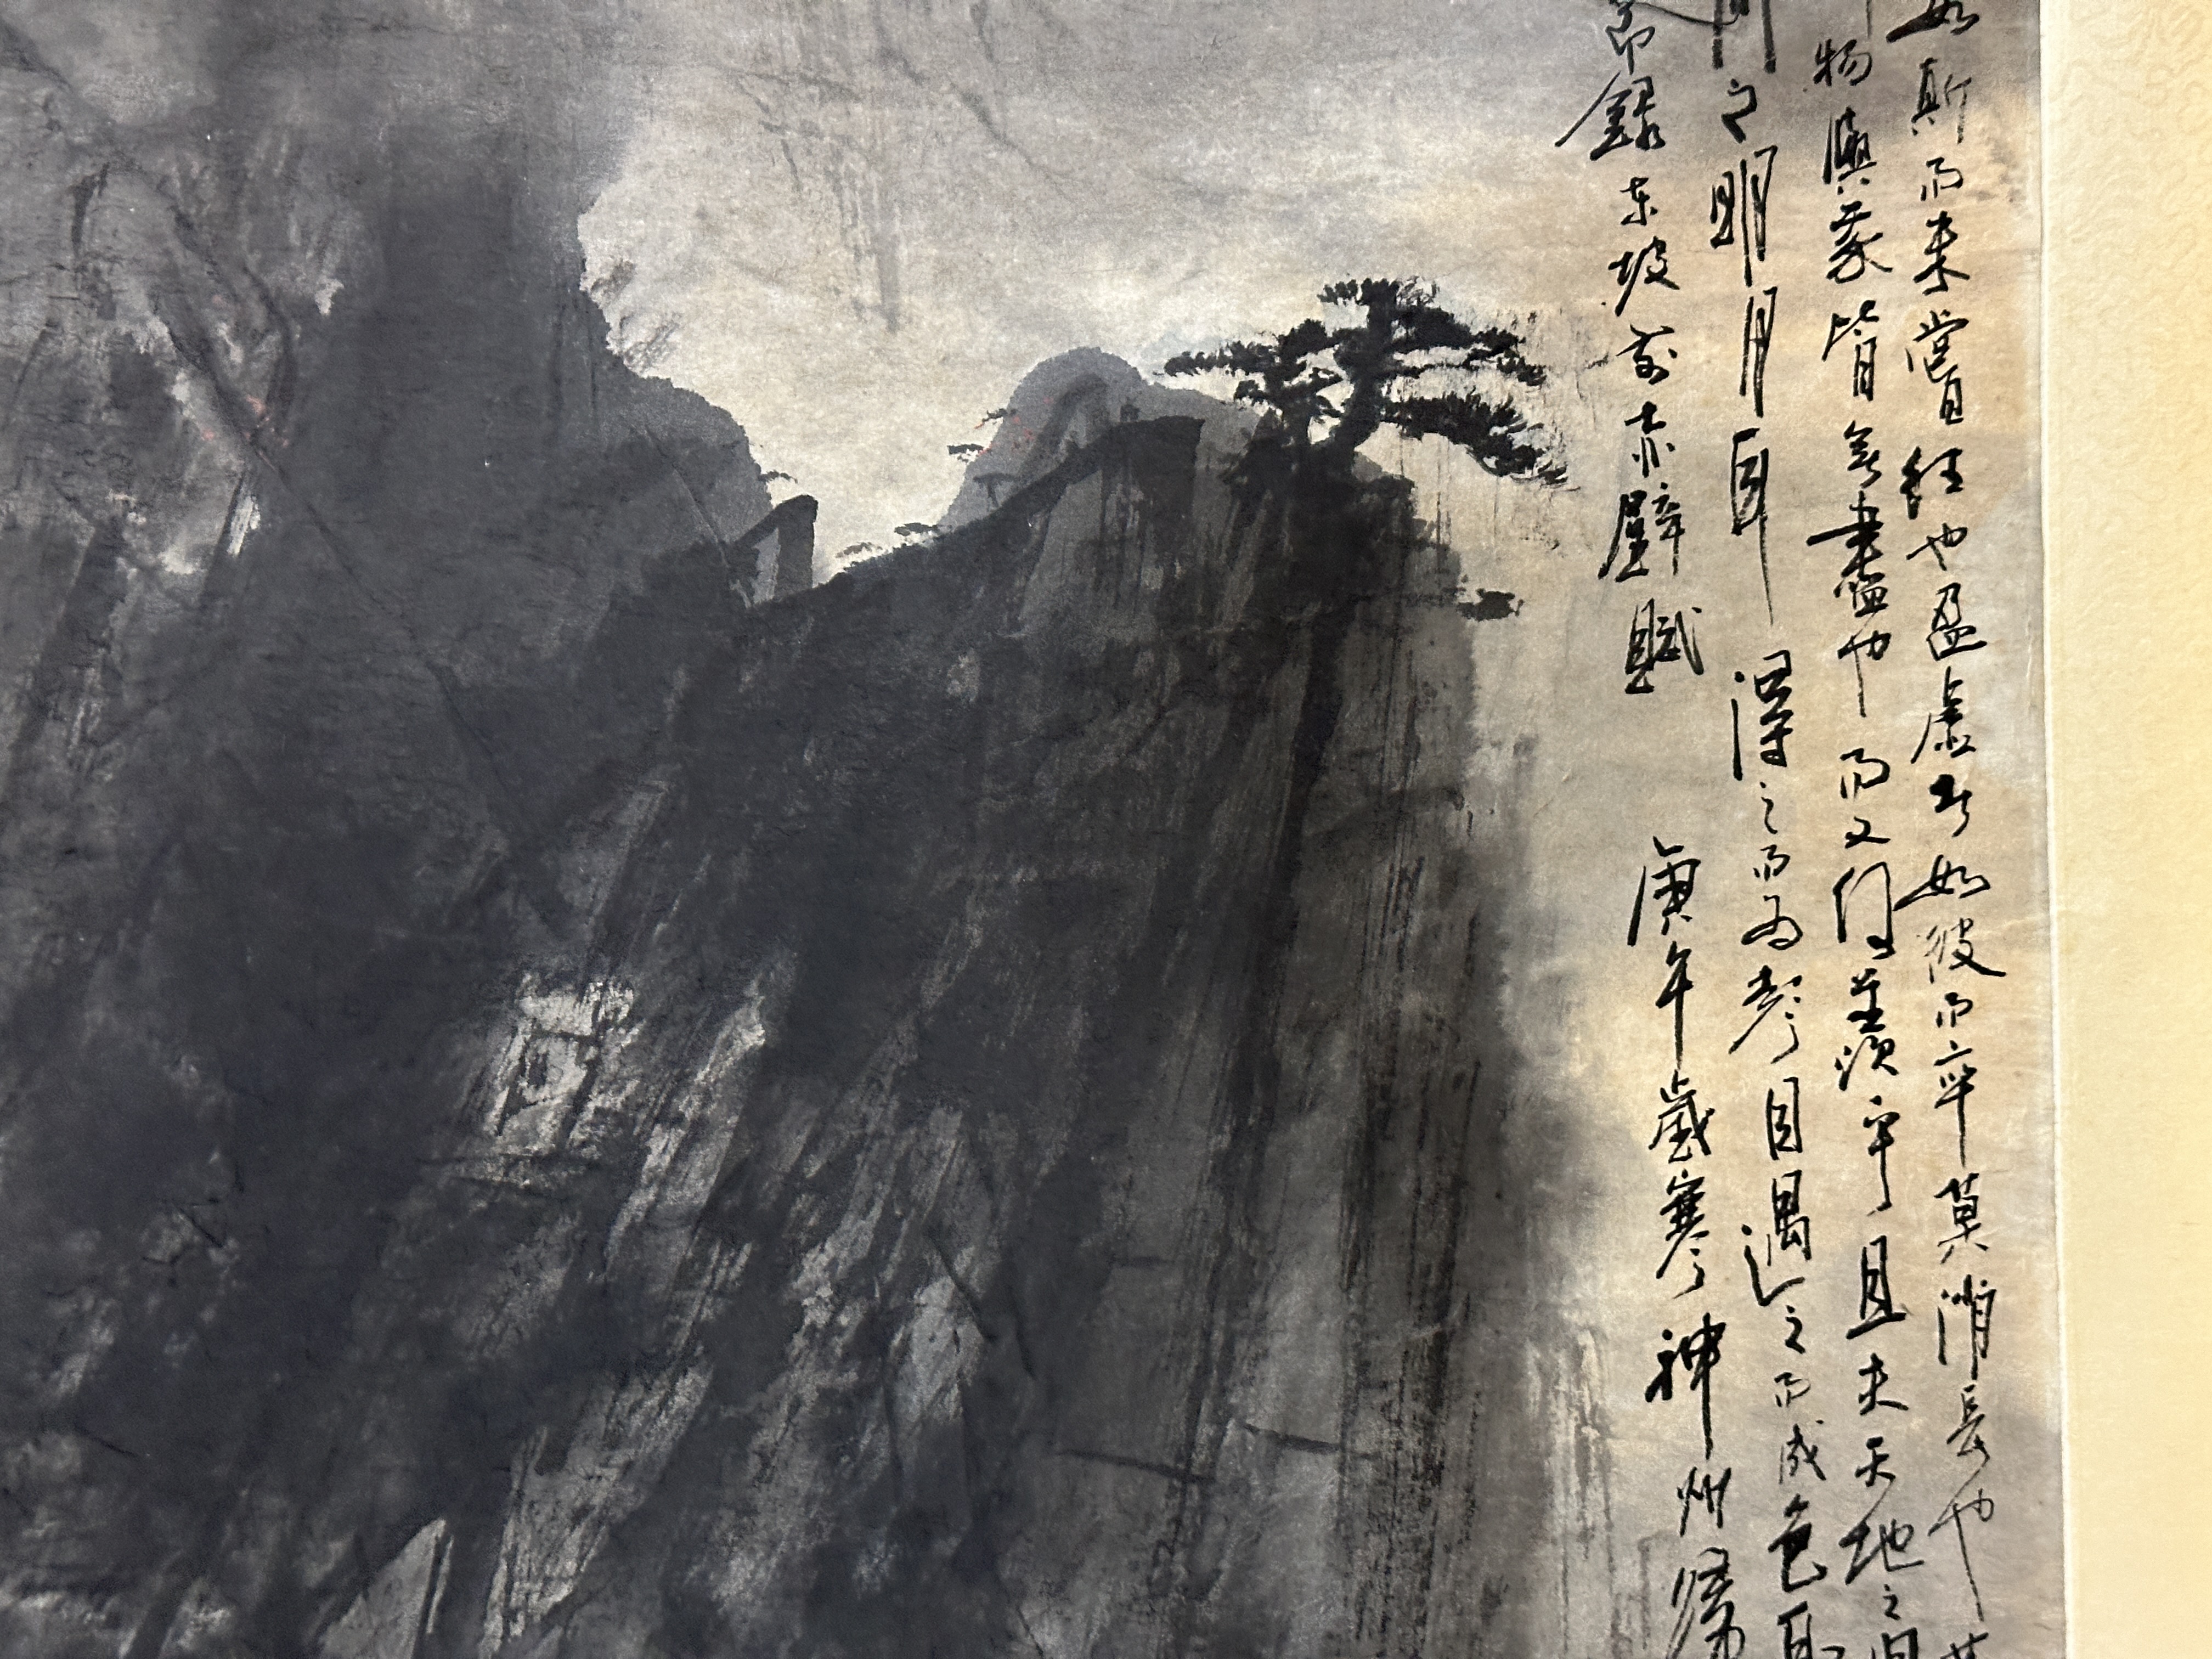 如斯而未嘗往也盈虛者如彼而卒莫消長也
物與我皆無盡也而又何羨須乎且夫天地之間
間之明月耳得之而為聲目遇之而成色取
節錄東坡前赤壁賦 庚午歲寒神州歸